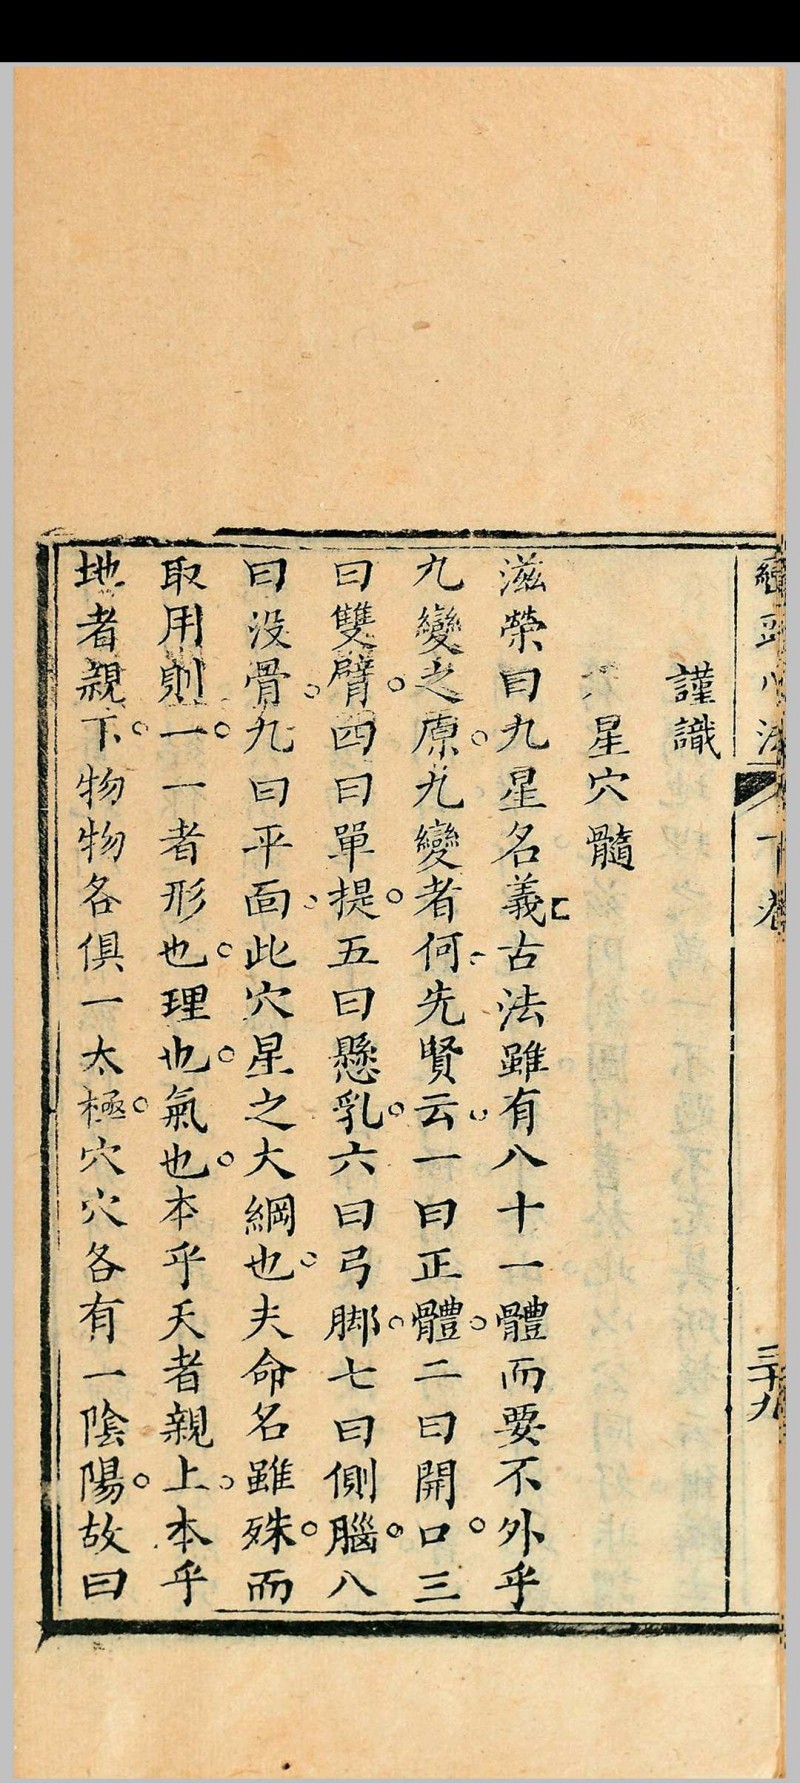 頭心法
下卷
三十九
謹識
星穴髓
滋榮曰九星名義古法雖有八十一體而要不外乎
九變之原。九變者何先賢云一曰正體。二曰開口。三
曰雙臂。四曰單提。五曰懸乳。六曰弓脚。七曰側腦。八
曰没骨。九曰平面。此穴星之大綱也。夫命名雖殊。而
取用則一。一者形也。理也。氣也。本乎天者親上。本乎
地者親下。物物各俱一太極。穴穴各有一陰陽。故曰